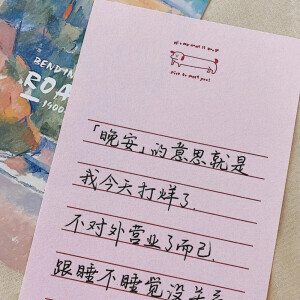 BENDIN
ROA
1900
nice to meet you!
「晚安」的意思就是
我今天打烊了.
不对外营业了而已.
跟睡不睡觉没关系